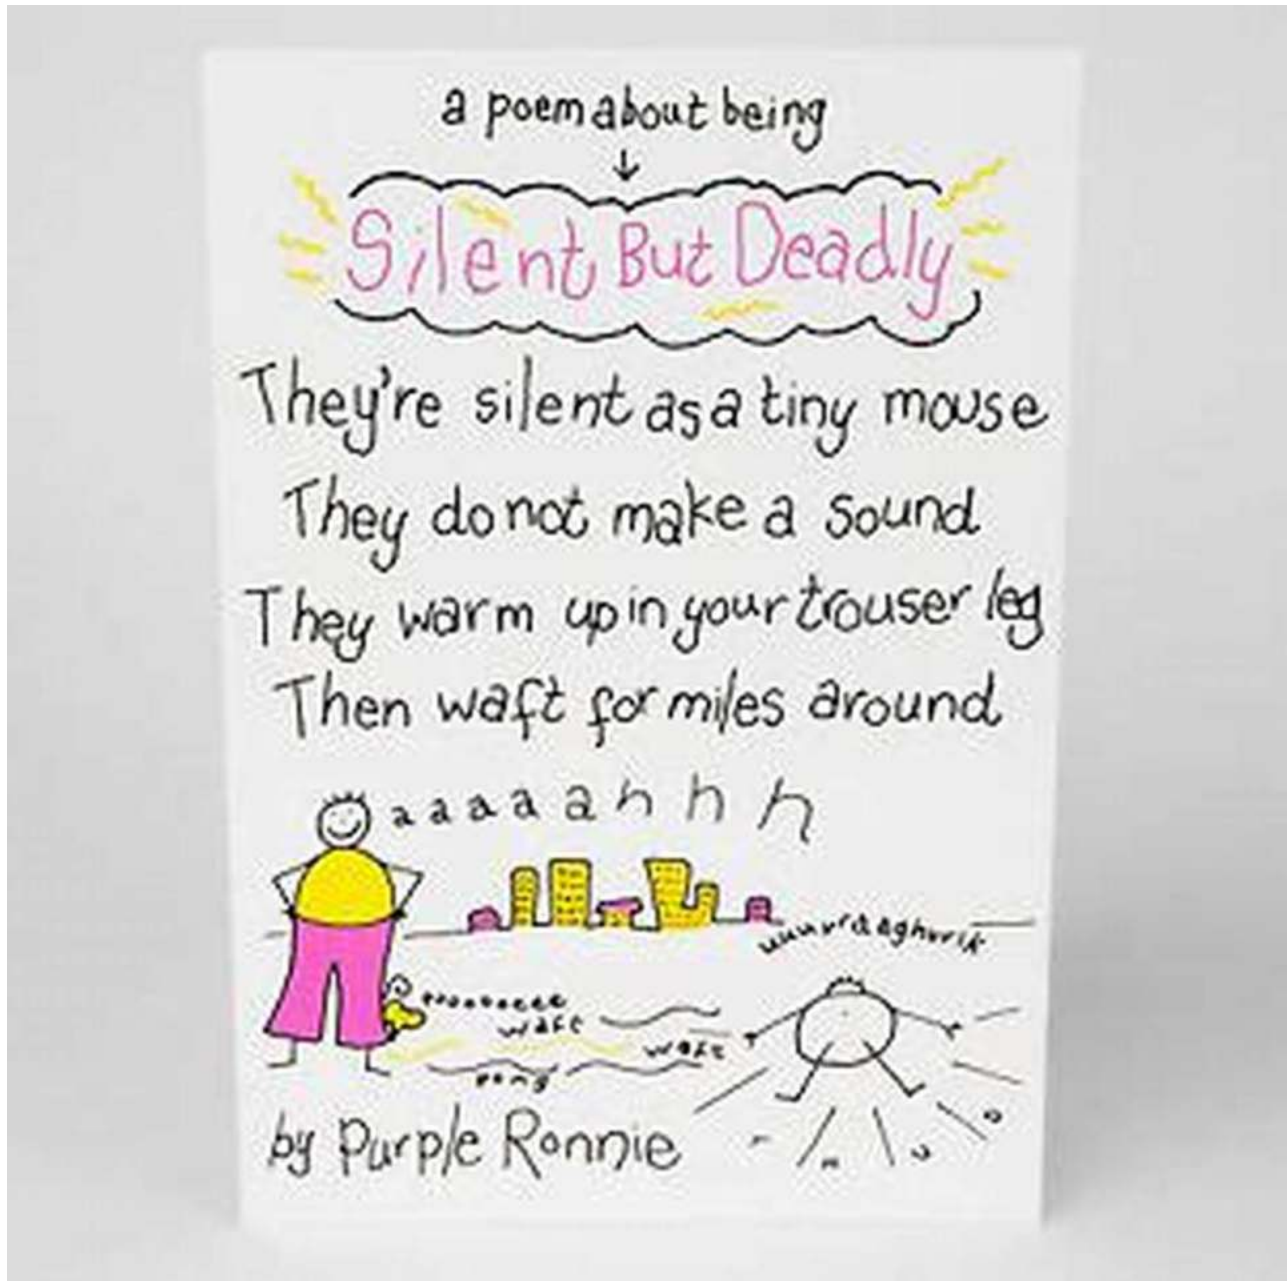 a poem about being
Silent But Deadly
They're silent as a tiny mouse
They do not make a sound
They warm up in your trouser leg
Then waft for miles around
a a a a a h h h
waft
waft
pong
by Purple Ronnie